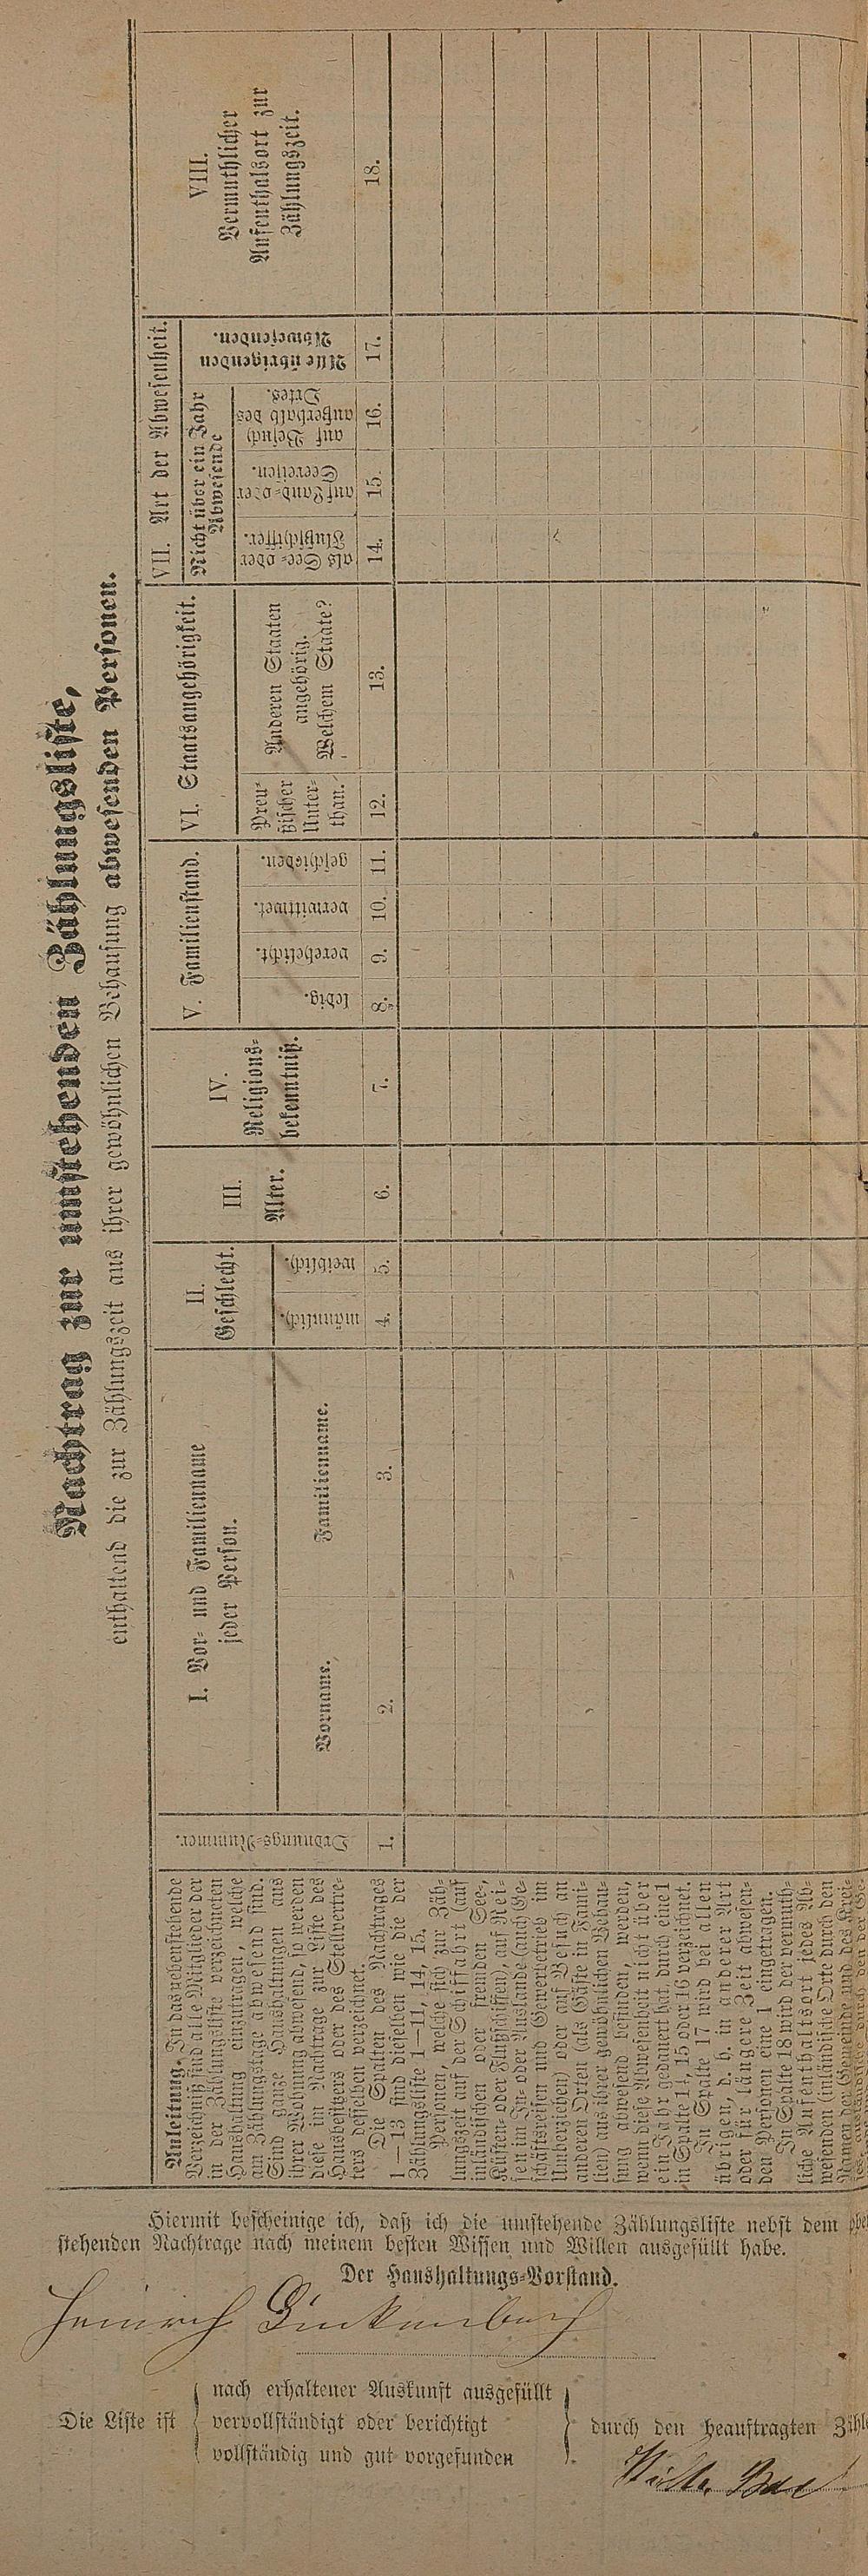 Nachtrag zur umstehenden Zählungsliste,
enthaltend die zur Zählungszeit aus ihrer gewöhnlichen Behausung abwesenden Personen.
Anleitung. In das nebenstehende
Verzeichniß sind alle Mitglieder der
in der Zählungsliste verzeichneten
Haushaltung einzutragen, welche
am Zählungstage abwesend sind.
Sind ganze Haushaltungen aus
ihrer Wohnung abwesend, so werden
diese im Nachtrage zur Liste des
Hausbesitzers oder des Stellvertre-
ters desselben verzeichnet.
Die Spalten des Nachtrages
1—13 sind dieselben wie die der
Zählungsliste 1—11, 14, 15.
Personen, welche sich zur Zäh-
lungszeit auf der Schiffahrt (auf
inländischen oder fremden See-,
Küsten- oder Flußschiffen), auf Rei-
sen im In- oder Auslande (auch Ge-
schäftsreisen und Gewerbetrieb im
Umherziehen) oder auf Besuch an
anderen Orten (als Gäste in Fami-
lien) aus ihrer gewöhnlichen Behau-
sung abwesend befinden, werden,
wenn diese Abwesenheit nicht über
ein Jahr gedauert hat, durch eine 1
in Spalte 14, 15 oder 16 verzeichnet.
In Spalte 17 wird bei allen
übrigen, d. h. in anderer Art
oder für längere Zeit abwesen-
den Personen eine 1 eingetragen.
In Spalte 18 wird der vermuth-
liche Aufenthaltsort jedes Ab-
wesenden (inländische Orte durch den
Namen der Gemeinde und des Krei-
Ordnungs-Nummer.
1.
I. Vor- und Familienname
jeder Person.
Vorname.
2.
Familienname.
3.
II.
Geschlecht.
männlich.
4.
weiblich.
5.
III.
Alter.
6.
IV.
Religions-
bekenntniß.
7.
V. Familienstand.
ledig.
8.
verehelicht.
9.
verwittwet.
10.
geschieden.
11.
VI. Staatsangehörigkeit.
Preu-
ßischer
Unter-
than.
12.
Anderen Staaten
angehörig.
Welchem Staate?
13.
VII. Art der Abwesenheit.
Nicht über ein Jahr
Abwesende
als See- oder
Flußschiffer.
14.
auf Land- oder
Seereisen.
15.
auf Besuch
außerhalb des
Ortes.
16.
Alle übrigenden
Abwesenden.
17.
VIII.
Vermuthlicher
Aufenthalsort zur
Zählungszeit.
18.
Hiermit bescheinige ich, daß ich die umstehende Zählungsliste nebst dem
stehenden Nachtrage nach meinem besten Wissen und Willen ausgefüllt habe.
Der Haushaltungs-Vorstand.
Heinrich
Die Liste ist
nach erhaltener Auskunft ausgefüllt
vervollständigt oder berichtigt
vollständig und gut vorgefunden
durch den beauftragten